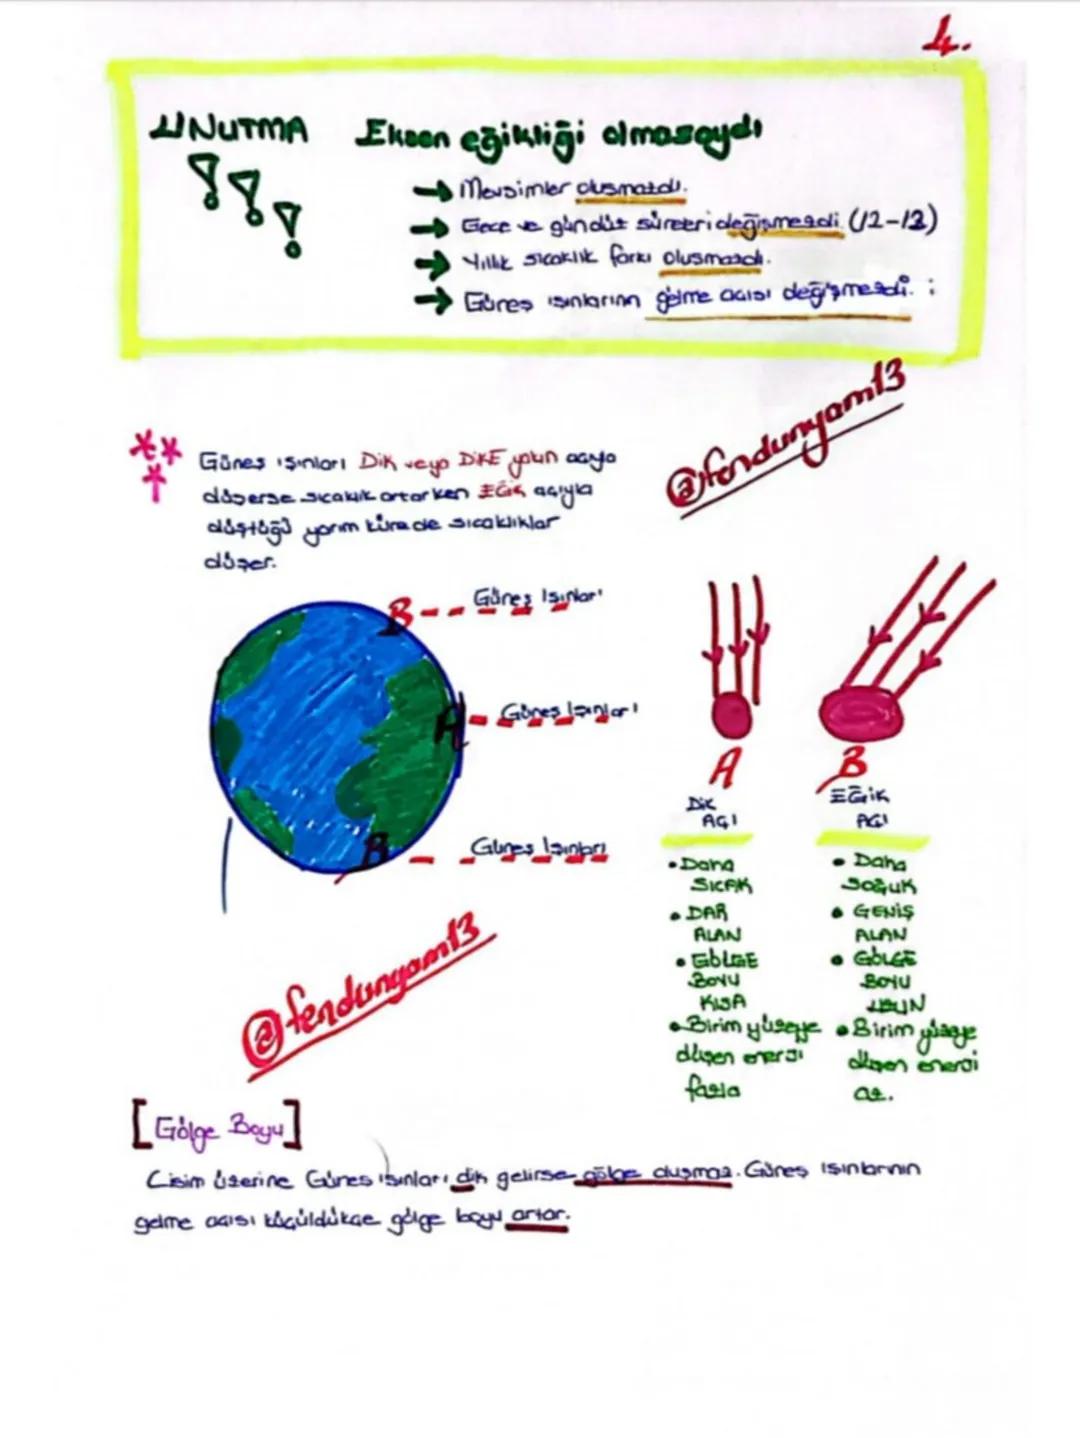 4.
UNUTMA Eksen eğikliği olmasaydı
!!!
→ Mevsimler oluşmazdı.
→ Gece ve gündüz süreleri değişmezdi. (12-12)
→ Yıllık sıcaklık farkı oluşmazdı.
→ Güneş ışınlarının gelme açısı değişmezdi.
@fendunyam13
Güneş ışınları Dik veya DİKE yakın açıyla
düşerse sıcaklık artarken EĞİK açıyla
düştüğü yarım kürede sıcaklıklar
düşer.
B Güneş Işınları
A Güneş Işınları
B Güneş Işınları
A
Dik
AÇI
• Daha
SICAK
• DAR
ALAN
• GÖLGE
BOYU
KISA
• Birim yüzeye
düşen enerji
fazla
B
EĞİK
AÇI
• Daha
SOĞUK
• GENİŞ
ALAN
• GÖLGE
BOYU
UZUN
• Birim yüzeye
düşen enerji
az.
@fendunyam13
[Gölge Boyu]
Cisim üzerine Güneş ışınları dik gelirse gölge oluşmaz. Güneş ışınlarının
gelme açısı küçüldükçe gölge boyu artar.